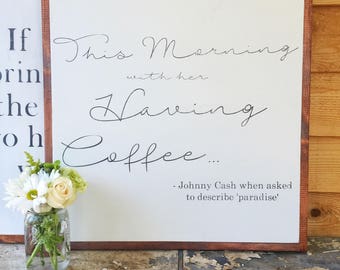 If
This Morning
with her
Having
Coffee...
- Johnny Cash when asked
to describe 'paradise'
the